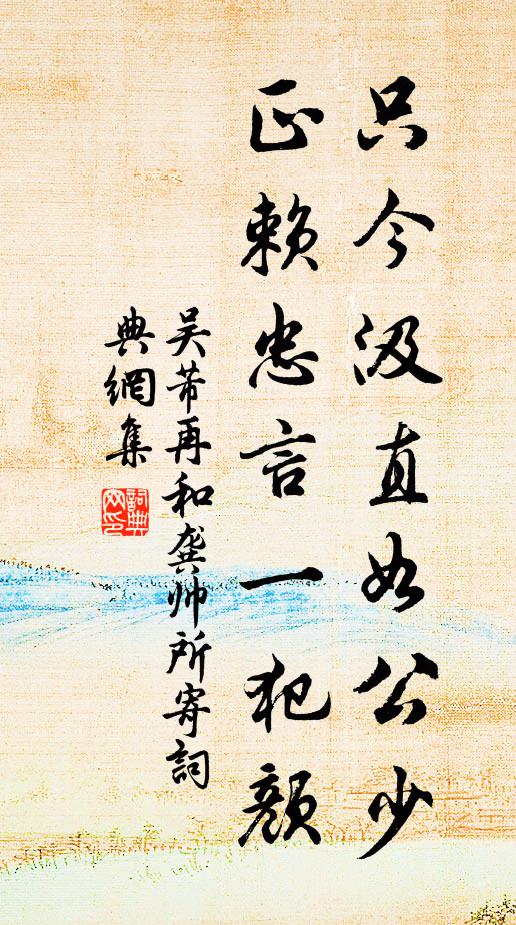 只今汲直如公少
正賴忠言一犯顏
吴芾再和龚帅所寄詞
典網集
詞典
网印